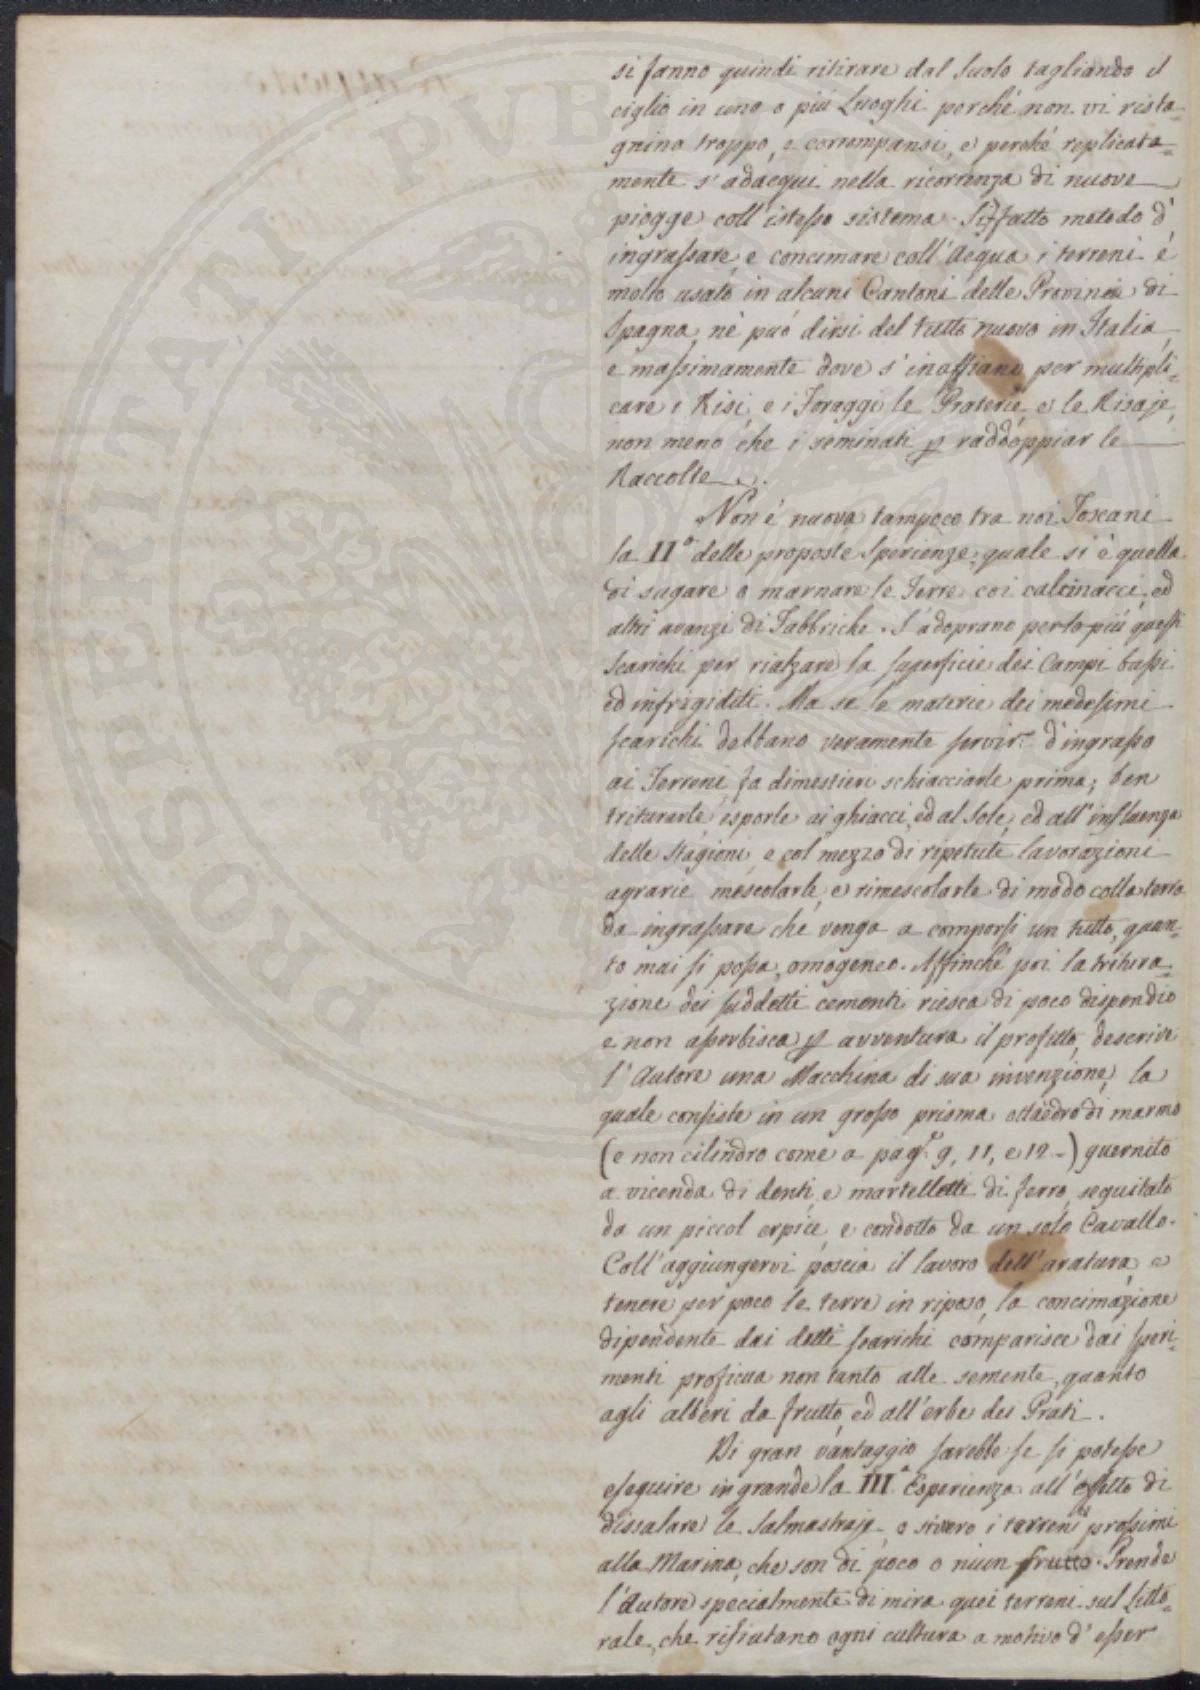 si fanno quindi ritirare dal Suolo tagliando il
ciglio in uno o più Luoghi perché non vi rista-
gnino troppo, e corrompansi, e perché replicata-
mente s'adacqui nella ricorrenza di nuove
piogge coll'istesso sistema. Siffatto metodo d'
ingrassare, e concimare coll'Acqua i terreni è
molto usato in alcuni Cantoni delle Provincie di
Spagna, nè può dirsi del tutto nuovo in Italia,
e massimamente dove s'inaffiano per multipli-
care i Risi, e i Foraggi le Praterie, e le Risaje,
non meno che i seminati p raddoppiar le
Raccolte.
Non è nuova tampoco tra noi Toscani
la IIa delle proposte Sperienze, quale si è quella
di sugare o marnare le Terre coi calcinacci, ed
altri avanzi di Fabbriche. S'adoprano per lo più questi
Scarichi per rialzare la superficie dei Campi bassi
ed infrigiditi. Ma se le materie dei medesimi
scarichi debbano veramente servire d'ingrasso
ai Terreni, fa dimestieri schiacciarle prima; ben
triturarle, esporle ai ghiacci, ed al Sole, ed all'influenza
delle Stagioni, e col mezzo di ripetute lavorazioni
agrarie mescolarle, e rimescolarle di modo colla terra
da ingrassare che venga a comporsi un tutto, quan-
to mai si possa, omogeneo. Affinché poi la tritura-
zione dei suddetti cementi riesca di poco dispendio
e non assorbisca p avventura il profitto, descrive
l'Autore una Macchina di sua invenzione, la
quale consiste in un grosso prisma ottaedro di marmo
(e non cilindro come a pag. 9, 11, e 12 -) guernito
a vicenda di denti, e martelletti di ferro, seguitato
da un piccol erpice, e condotto da un solo Cavallo.
Coll'aggiungervi poscia il lavoro dell'aratura, e
tenere per poco le terre in riposo, la concimazione
dipendente dai detti scarichi comparisce dai speri-
menti proficua non tanto alle semente, quanto
agli alberi da frutto, ed all'erbe dei Prati.
Di gran vantaggio sarebbe se si potesse
eseguire in grande la IIIa Esperienza all'effetto di
dissalare le Salmastraje o sivvero i terreni prossimi
alla Marina, che son di poco o niun frutto. Prende
l'Autore specialmente di mira quei terreni sul Litto-
rale, che rifiutano ogni cultura a motivo d'esser
PROSPERITATI PVBLI